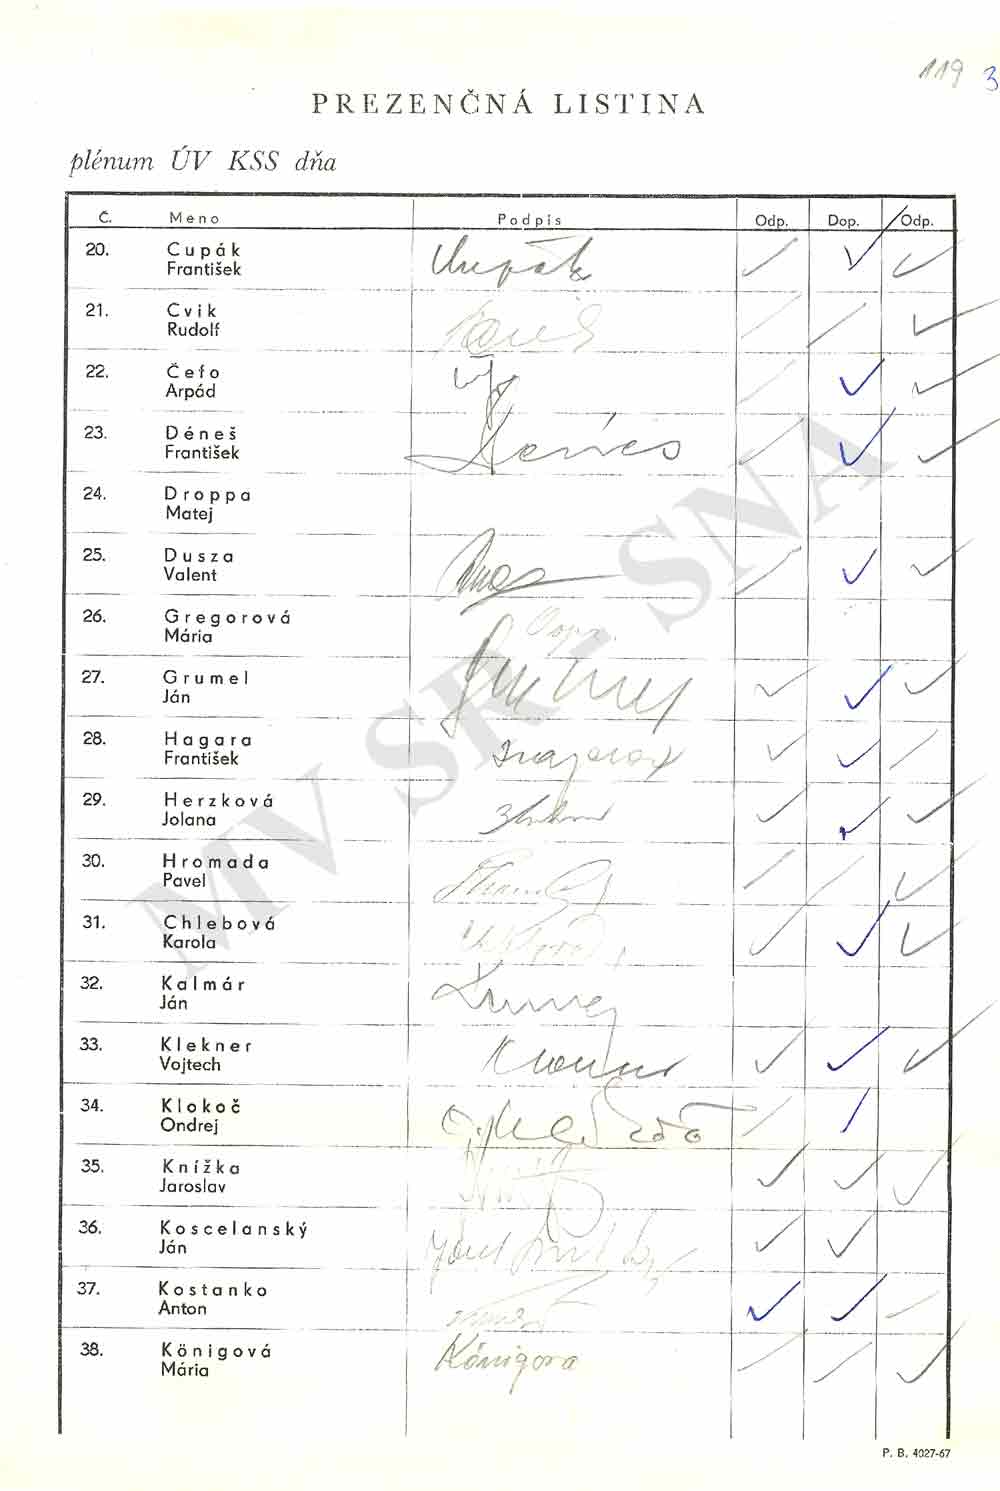 119 3
PREZENČNÁ LISTINA
plénum ÚV KSS dňa
Č. Meno Podpis Odp. Dop. Odp.
20. Cupák Cupák
František
21. Cvik
Rudolf
22. Čefo
Arpád
23. Déneš Denes
František
24. Droppa
Matej
25. Dusza
Valent
26. Gregorová
Mária
27. Grumel
Ján
28. Hagara
František
29. Herzková
Jolana
30. Hromada
Pavel
31. Chlebová
Karola
32. Kalmár
Ján
33. Klekner
Vojtech
34. Klokoč
Ondrej
35. Knížka
Jaroslav
36. Koscelanský
Ján
37. Kostanko
Anton
38. Königová Königova
Mária
P. B. 4027-67
MV SR - SNA